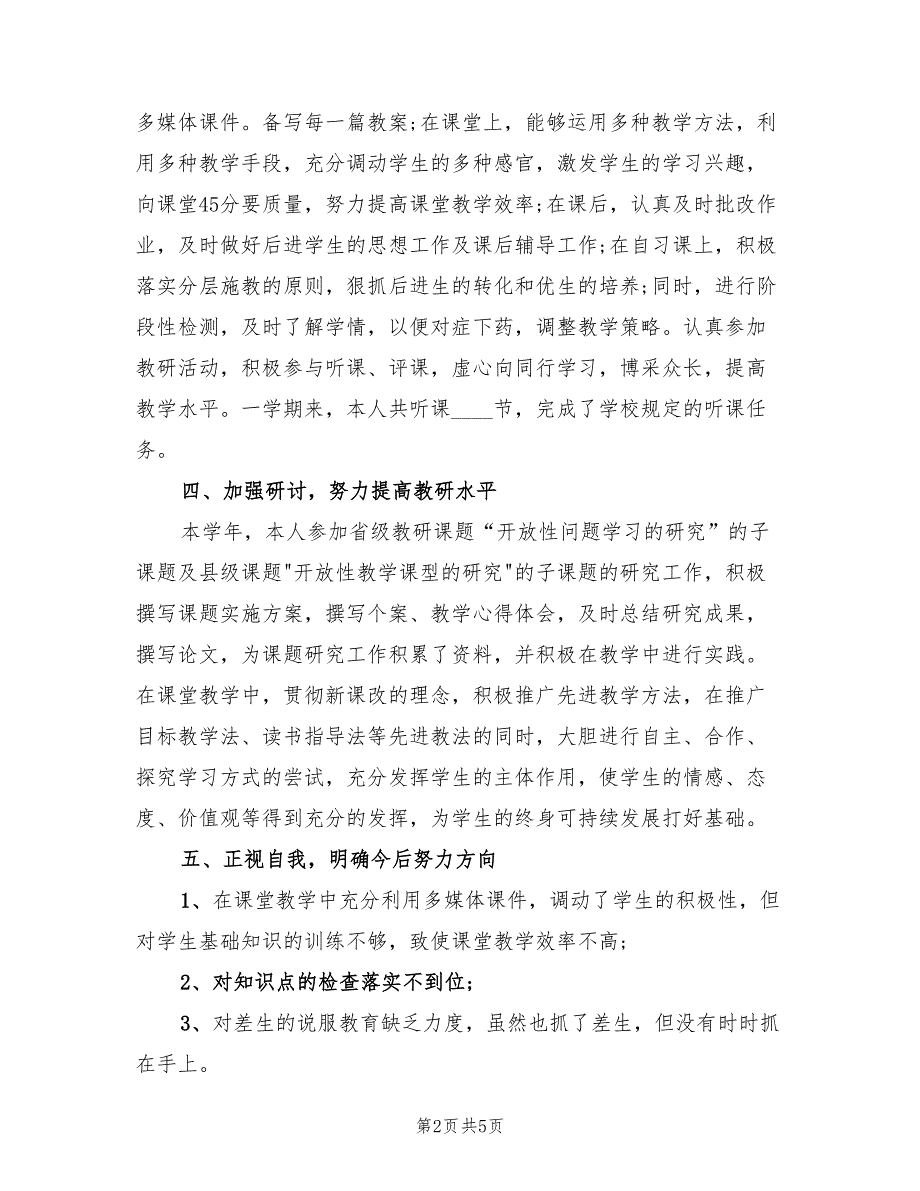 多媒体课件。备写每一篇教案;在课堂上，能够运用多种教学方法，利
用多种教学手段，充分调动学生的多种感官，激发学生的学习兴趣，
向课堂45分要质量，努力提高课堂教学效率;在课后，认真及时批改作
业，及时做好后进学生的思想工作及课后辅导工作;在自习课上，积极
落实分层施教的原则，狠抓后进生的转化和优生的培养;同时，进行阶
段性检测，及时了解学情，以便对症下药，调整教学策略。认真参加
教研活动，积极参与听课、评课，虚心向同行学习，博采众长，提高
教学水平。一学期来，本人共听课____节，完成了学校规定的听课任
务。
四、加强研讨，努力提高教研水平
本学年，本人参加省级教研课题“开放性问题学习的研究”的子
课题及县级课题"开放性教学课型的研究"的子课题的研究工作，积极
撰写课题实施方案，撰写个案、教学心得体会，及时总结研究成果，
撰写论文，为课题研究工作积累了资料，并积极在教学中进行实践。
在课堂教学中，贯彻新课改的理念，积极推广先进教学方法，在推广
目标教学法、读书指导法等先进教法的同时，大胆进行自主、合作、
探究学习方式的尝试，充分发挥学生的主体作用，使学生的情感、态
度、价值观等得到充分的发挥，为学生的终身可持续发展打好基础。
五、正视自我，明确今后努力方向
1、在课堂教学中充分利用多媒体课件，调动了学生的积极性，但
对学生基础知识的训练不够，致使课堂教学效率不高;
2、对知识点的检查落实不到位;
3、对差生的说服教育缺乏力度，虽然也抓了差生，但没有时时抓
在手上。
第2页共5页